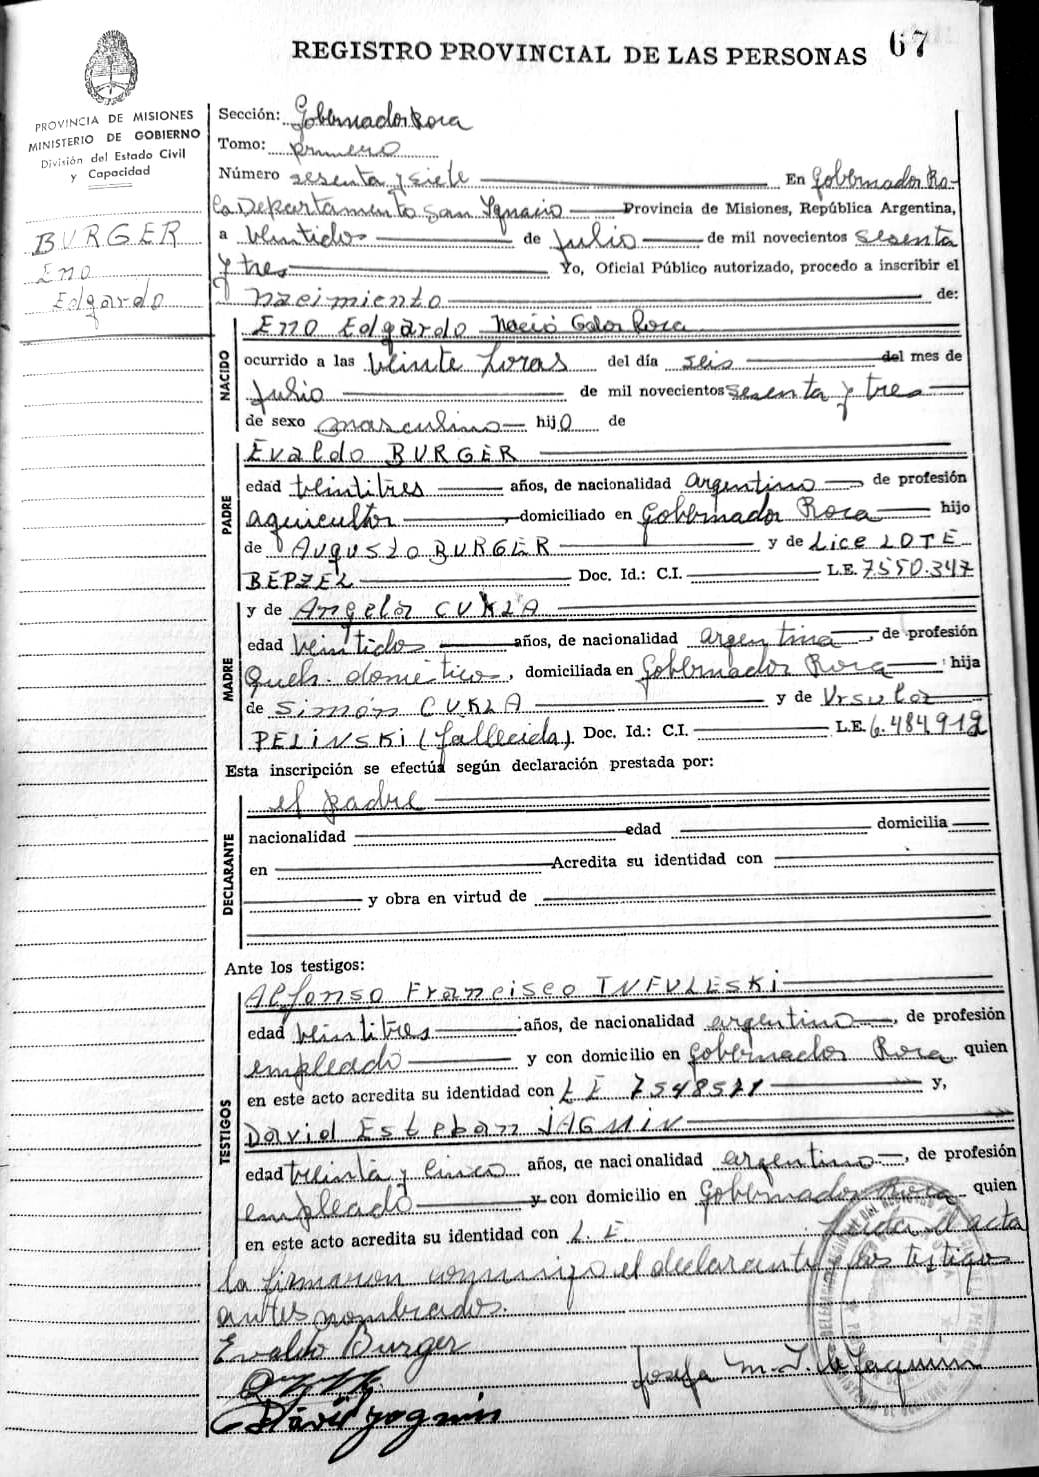 REGISTRO PROVINCIAL DE LAS PERSONAS 67
PROVINCIA DE MISIONES
MINISTERIO DE GOBIERNO
División del Estado Civil
y Capacidad
BURGER
Eno
Edgardo
Sección: Gobernador Roca
Tomo: primero
Número sesenta y siete En Gobernador Ro-
ca Departamento San Ignacio Provincia de Misiones, República Argentina,
a veintidos de Julio de mil novecientos sesenta
y tres Yo, Oficial Público autorizado, procedo a inscribir el
nacimiento de:
NACIDO
Eno Edgardo Nació Gdor Roca
ocurrido a las veinte horas del día seis del mes de
Julio de mil novecientos sesenta y tres
de sexo masculino hijo de
PADRE
Evaldo BURGER
edad veintitres años, de nacionalidad argentino de profesión
agricultor, domiciliado en Gobernador Roca hijo
de Augusto BURGER y de Lice LOTE
BEPZEL Doc. Id.: C.I. L.E. 7550.347
MADRE
y de Angela CUKLA
edad veintidos años, de nacionalidad argentina, de profesión
Queh. dométicos, domiciliada en Gobernador Roca hija
de Simón CUKLA y de Ursula
PELINSKI (fallecida) Doc. Id.: C.I. L.E. 6.484.912
Esta inscripción se efectúa según declaración prestada por:
DECLARANTE
el padre
nacionalidad edad domicilia
en Acredita su identidad con
y obra en virtud de
Ante los testigos:
TESTIGOS
Alfonso Francisco INFULESKI
edad veintitres años, de nacionalidad argentino, de profesión
empleado y con domicilio en Gobernador Roca quien
en este acto acredita su identidad con L E 7548571 y,
David Esteban JAGMIN
edad treinta y cinco años, de nacionalidad argentino, de profesión
empleado y con domicilio en Gobernador Roca quien
en este acto acredita su identidad con L. E. Leida el acta
la firmaron conmigo el declarante y los testigos
antes nombrados.
Evaldo Burger
Josefa M. de Jaqumin
David Jagmin